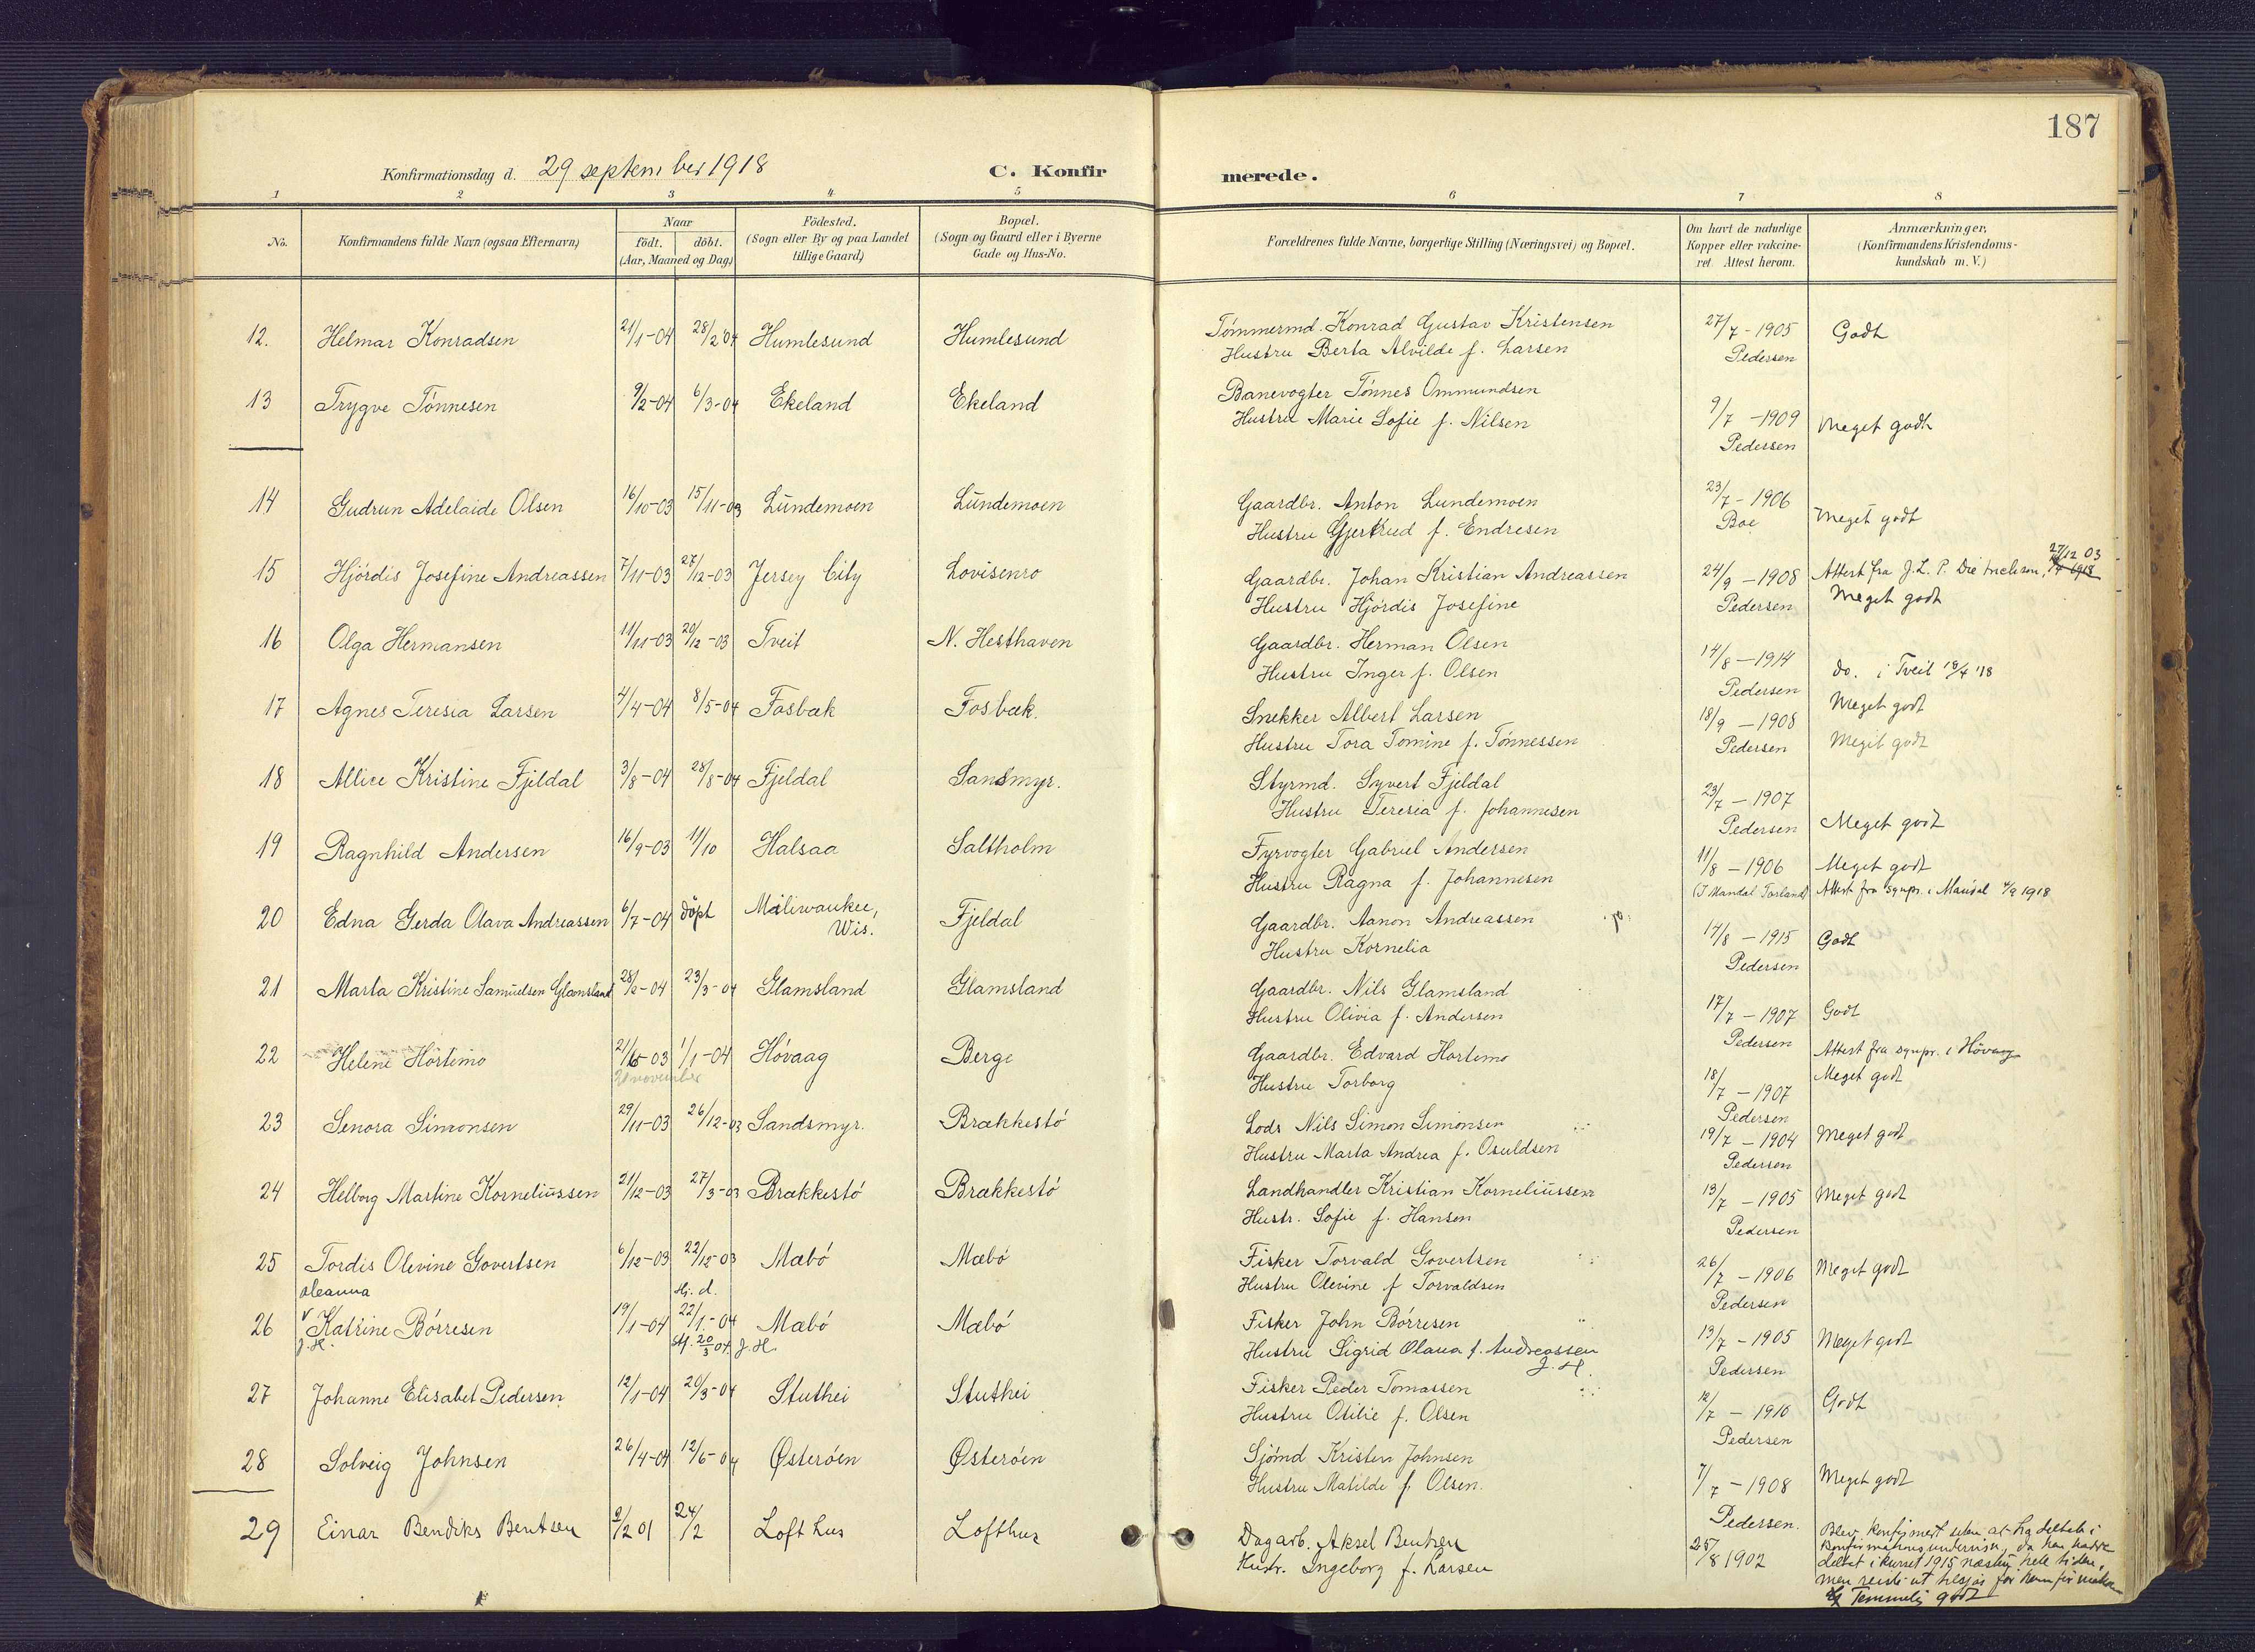 187
Konfirmationsdag d. 29 september 1918
C. Konfirmerede.
1 2 3 4 5 6 7 8
No.
Konfirmandens fulde Navn (ogsaa Efternavn)
Naar
födt. döbt.
(Aar, Maaned og Dag.)
Födested.
(Sogn eller By og paa Landet
tillige Gaard)
Bopæl.
(Sogn og Gaard eller i Byerne
Gade og Hus-No.
Forældrenes fulde Navne, borgerlige Stilling (Næringsvei) og Bopæl.
Om havt de naturlige
Kopper eller vakcine-
ret. Attest herom.
Anmærkninger,
(Konfirmandens Kristendoms-
kundskab m. V.)
12. Helmar Konradsen 21/1-04 28/2 04 Humlesund Humlesund Tømmermd. Konrad Gustav Kristensen 27/7-1905 Godt
Hustru Berta Alvilde f. Larsen Pedersen
13 Trygve Tönnesen 9/2-04 6/3-04 Ekeland Ekeland Banevogter Tönnes Ommundsen 9/7-1909 Meget godt
Hustru Marie Sofie f. Nilsen Pedersen
14 Gudrun Adelaide Olsen 16/10-03 15/11-03 Lundemoen Lundemoen Gaardbr. Anton Lundemoen 23/7-1906 Meget godt
Hustru Gjertrud f. Endresen Boe
15 Hjördis Josefine Andreassen 7/11-03 27/12-03 Jersey City Lovisenro Gaardbr. Johan Kristian Andreassen 24/9-1908 Attest fra J. L. P. 27/12 03
Hustru Hjördis Josefine Pedersen Meget godt
16 Olga Hermansen 11/11-03 20/12-03 Tveit N. Hesthaven Gaardbr. Herman Olsen 14/8-1914 do. i Tveit 18/4 '18
Hustru Inger f. Olsen Pedersen Meget godt
17 Agnes Teresia Larsen 4/4-04 8/5-04 Fosbæk Fosbæk. Snekker Albert Larsen 18/9-1908 Meget godt
Hustru Tora Tomine f. Tönnessen Pedersen
18 Allice Kristine Fjeldal 3/8-04 28/8-04 Fjeldal Sandsmyr. Styrmd. Syvert Fjeldal 23/7-1907 Meget godt
Hustru Teresia f. Johannesen Pedersen
19 Ragnhild Andersen 16/9-03 11/10 Halsaa Saltholm Fyrvogter Gabriel Andersen 11/8-1906 Meget godt
Hustru Ragna f. Johannesen (I Mandal Torland) Attest fra sgnpr. i Mandal 4/9 1918
20 Edna Gerda Olava Andreassen 6/7-04 döpt Miliwaukee, Wis. Fjeldal Gaardbr. Aanon Andreassen 14/8-1915 Godt
Hustru Kornelia Pedersen
21 Marta Kristine Samuelsen Glamsland 28/2-04 23/3-04 Glamsland Glamsland Gaardbr. Nils Glamsland 17/7-1907 Godt
Hustru Olivia f. Andersen Pedersen
22 Helene Hortemo 03 1/1-04 Hövaag Berge Gaardbr. Edvard Hortemo 18/7-1907 Attest fra sgnpr. i Hövaag
21 november Hustru Torborg Pedersen Meget godt
23 Senora Simonsen 29/11-03 26/12-03 Sandsmyr. Brækkestö Lods Nils Simon Simonsen 19/7-1904 Meget godt
Hustru Marta Andrea f. Osuldsen Pedersen
24 Helborg Martine Korneliussen 21/12-03 27/3-03 Brækkestö Brækkestö Landhandler Kristian Korneliussen 13/7-1905 Meget godt
Hustr. Sofie f. Hansen Pedersen
25 Tordis Olevine Govertsen 6/12-03 22/12-03 Mæbö Mæbö Fisker Torvald Govertsen 26/7-1906 Meget godt
Hustru Olevine f Torvaldsen Pedersen
oleanna Hj. d.
26 Katrine Börresen 19/1-04 22/1-04 Mæbö Mæbö Fisker John Börresen 13/7-1905 Meget godt
J. H. 20/3 04. J. H. Hustru Sigrid Olava f. Andreassen J. H. Pedersen
27 Johanne Elisabet Pedersen 12/1-04 20/3-04 Stuthei Stuthei Fisker Peder Tomassen 12/7-1910 Godt
Hustru Otilie f. Olsen Pedersen
28 Solveig Johnsen 26/4-04 12/6-04 Østeröen Østeröen Sjömd Kristen Johnsen 7/7-1908 Meget godt
Hustru Matilde f. Olsen. Pedersen.
29 Einar Bendiks Bentsen 9/2 01 24/2 Lofthus Lofthus Dagarb. Aksel Bentsen 25/8 1902 Blev konfirmert uten at ha deltatt i
Hustr. Ingeborg f. Larsen konfirmationsundervisn, da han hadde
deltat i kurset 1915 næsten hele tiden,
men reiste ut tilsjös før konfirmationen
Temmelig godt